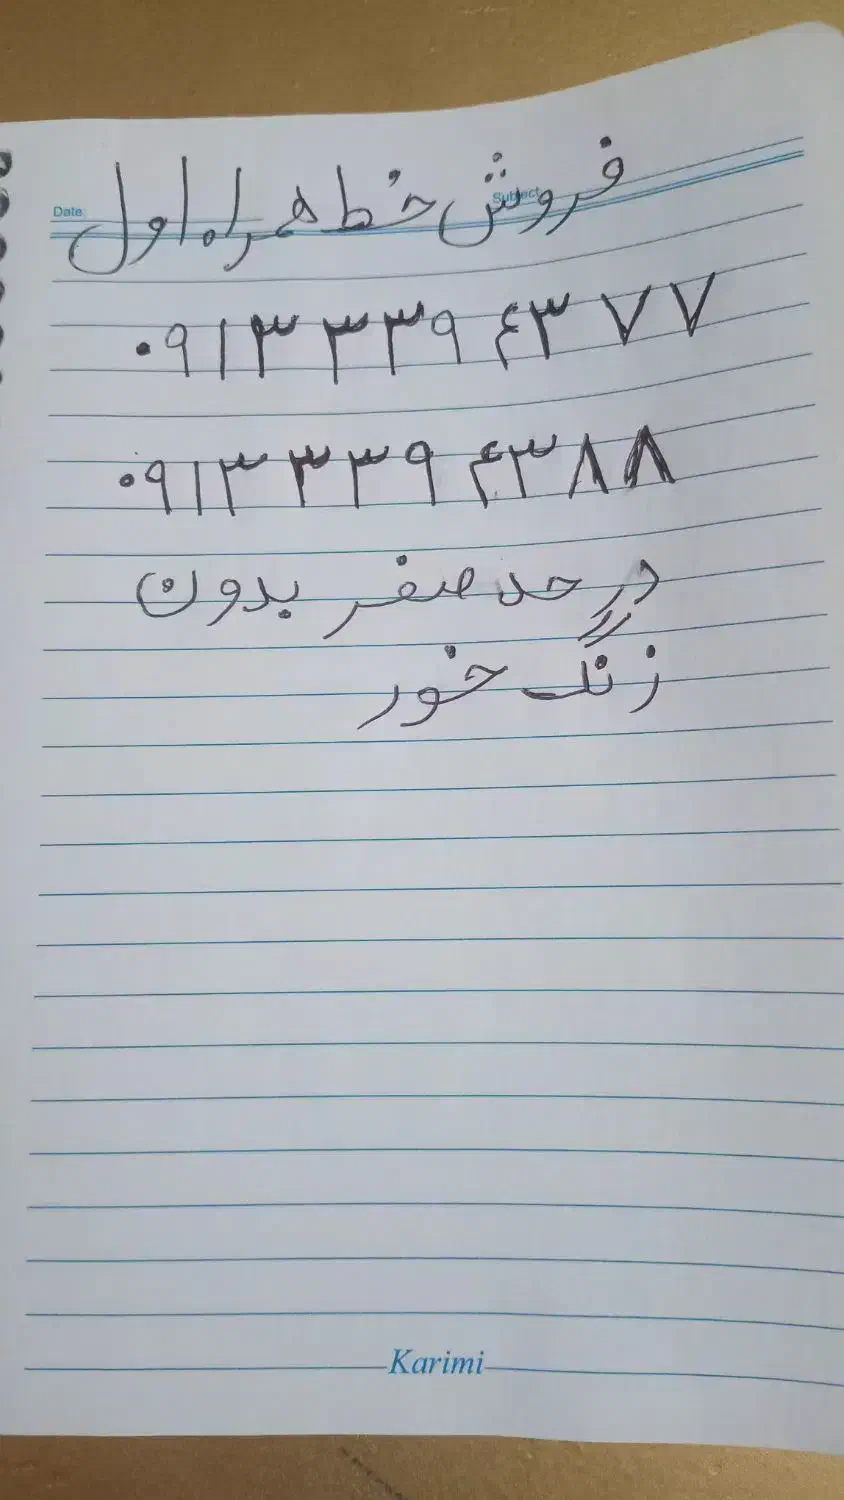 Date:
Subject:
فروش خط همراه اول
۰۹۱۳ ۳۳۹ ۴۳ ۷۷
۰۹۱۳ ۳۳۹ ۴۳ ۸۸
در حد صفر بدون
زنگ خور
Karimi